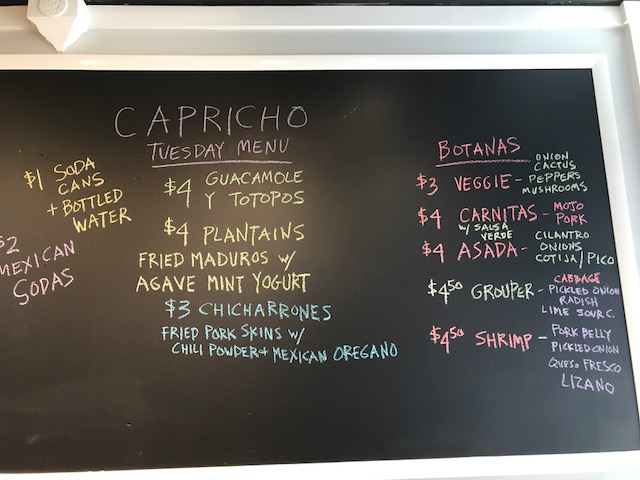 CAPRICHO
TUESDAY MENU
$1 SODA
CANS
+ BOTTLED
WATER
$2
MEXICAN
SODAS
$4 GUACAMOLE
Y TOTOPOS
$4 PLANTAINS
FRIED MADUROS W/
AGAVE MINT YOGURT
$3 CHICHARRONES
FRIED PORK SKINS W/
CHILI POWDER + MEXICAN OREGANO
BOTANAS
$3 VEGGIE - ONION
CACTUS
PEPPERS
MUSHROOMS
$4 CARNITAS - MOJO
PORK
W/ SALSA
VERDE
$4 ASADA - CILANTRO
ONIONS
COTIJA/PICO
$4.50 GROUPER - CABBAGE
PICKLED ONION
RADISH
LIME SOUR C.
$4.50 SHRIMP - PORK BELLY
PICKLED ONION
QUESO FRESCO
LIZANO